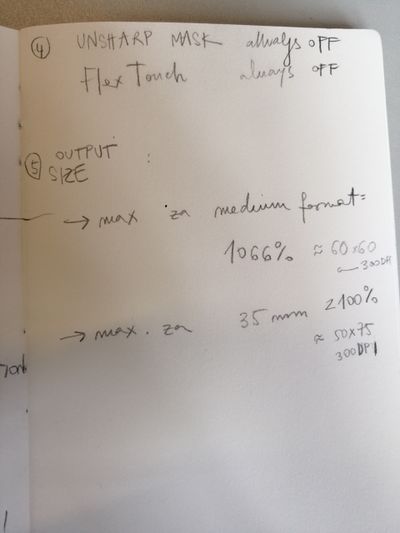 ④ UNSHARP MASK always OFF
FlexTouch always OFF
⑤ OUTPUT SIZE :
→ max za medium format=
1066% ≈ 60x60
300DPI
→ max. za 35 mm 2100%
≈ 50x75
300DPI